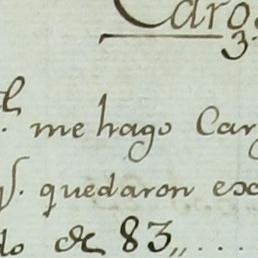 Caro
3
me hago Car
q.^ quedaron exc
do de 83,,....